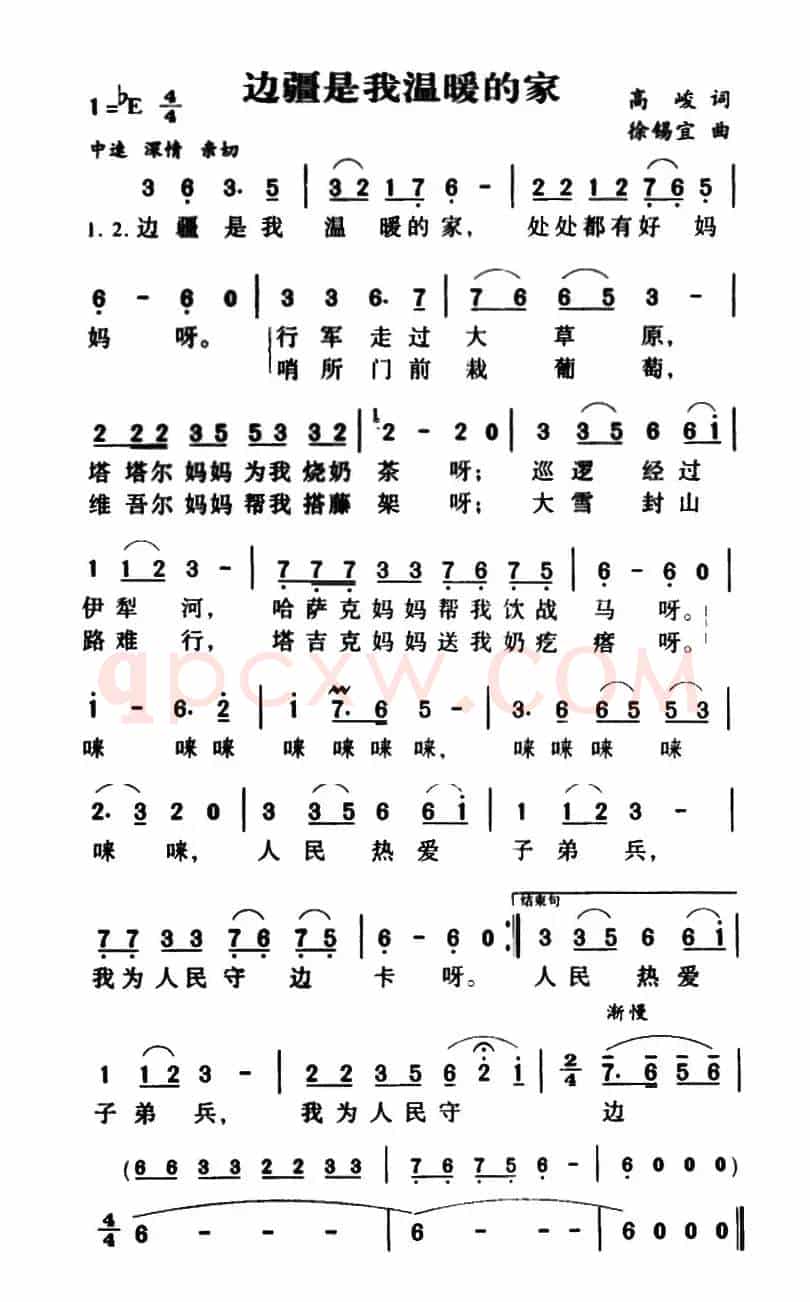 边疆是我温暖的家
1=♭E 4/4
高峻 词
徐锡宜 曲
中速 深情 亲切
3 6 3· 5 | 3 2 1 7 6 - | 2 2 1 2 7 6 5 |
1.2.边疆是我 温暖的家, 处处都有好妈
6 - 6 0 | 3 3 6· 7 | 7 6 6 5 3 - |
妈呀。 行军走过大草原,
哨所门前栽葡萄,
2 2 2 3 5 5 3 3 2 | 1 2 - 2 0 | 3 3 5 6 6 i |
塔塔尔妈妈为我烧奶茶呀; 巡逻经过
维吾尔妈妈帮我搭藤架呀; 大雪封山
1 1 2 3 - | 7 7 7 3 3 7 6 7 5 | 6 - 6 0 |
伊犁河, 哈萨克妈妈帮我饮战马呀。
路难行, 塔吉克妈妈送我奶疙瘩呀。
qpcxw.COM
i - 6· 2 | i 7· 6 5 - | 3· 6 6 5 5 3 |
咪 咪咪 咪咪咪咪, 咪咪咪 咪
2· 3 2 0 | 3 3 5 6 6 i | 1 1 2 3 - |
咪 咪, 人民热爱 子弟兵,
结束句
7 7 3 3 7 6 7 5 | 6 - 6 0 :‖ 3 3 5 6 6 i |
我为人民守边卡呀。 人民热爱
渐慢
1 1 2 3 - | 2 2 3 5 6 2 i | 2/4 7· 6 5 6 |
子弟兵, 我为人民守 边
(6 6 3 3 2 2 3 3 | 7 6 7 5 6 - | 6 0 0 0)
4/4 6 - - - | 6 - - - | 6 0 0 0 ‖